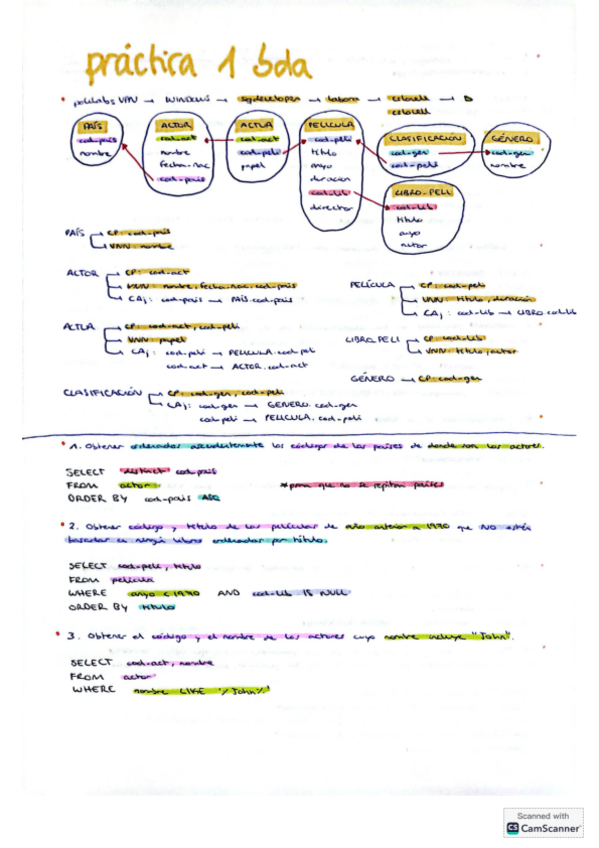 práctica 1 bda
• polilabs VPN → WINDOWS → sqldeveloper → labora → → D
PAÍS
cod-país
nombre
ACTOR
cod-act
nombre
fecha-nac
cod-pais
ACTUA
cod-act
cod-peli
papel
PELICULA
cod-peli
titulo
anyo
duracion
cod-lib
director
CLASIFICACIÓN
cod-gen
cod-peli
GÉNERO
cod-gen
nombre
LIBRO-PELI
cod-lib
titulo
anyo
autor
PAÍS → CP: cod-pais
VNN: nombre
ACTOR → CP: cod-act
VNN: nombre, fecha-nac, cod-pais
CAj: cod-pais → PAIS.cod-pais
ACTUA → CP: cod-act, cod-peli
VNN: papel
CAj: cod-peli → PELICULA.cod-peli
cod-act → ACTOR.cod-act
CLASIFICACIÓN → CP: cod-gen, cod-peli
CAj: cod-gen → GENERO.cod-gen
cod-peli → PELICULA.cod-peli
PELÍCULA → CP: cod-peli
VNN: titulo, duración
CAj: cod-lib → LIBRO.cod-lib
LIBRO PELI → CP: cod-lib
VNN: titulo, autor
GÉNERO → CP: cod-gen
• 1. Obtener ordenados ascendentemente los códigos de los países de donde son los actores.
SELECT distinct cod-pais
FROM actor *para que no se repitan países
ORDER BY cod-pais ASC
• 2. Obtener código y título de las películas de año anterior a 1970 que NO estén
basadas en ningún libro ordenadas por título.
SELECT cod-peli, titulo
FROM película
WHERE anyo < 1970 AND cod-lib IS NULL
ORDER BY titulo
• 3. Obtener el código y el nombre de los actores cuyo nombre incluye "John".
SELECT cod-act, nombre
FROM actor
WHERE nombre LIKE '%John%'
Scanned with
CS CamScanner